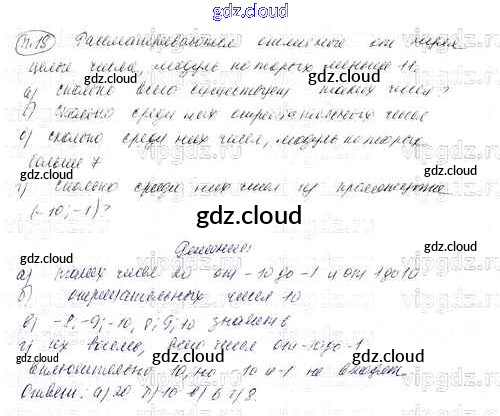 gdz.cloud
п.15 Рассматриваются отличные от нуля
целые числа, модуль которых меньше 11.
gdz.cloud gdz.cloud
а) сколько всего существует таких чисел?
б) сколько среди них отрицательных чисел
в) сколько среди них чисел, модуль которых
больше 7
gdz.cloud gdz.cloud
г) сколько среди них чисел из промежутка
(-10; -1)?
gdz.cloud
Решение
а) таких чисел 20 от -10 до -1 и от 1 до 10
gdz.cloud gdz.cloud
б) отрицательных чисел 10
в) -8, -9; -10, 8; 9; 10 значит 6
г) их восемь, всего чисел от -10 до -1
gdz.cloud gdz.cloud
включительно 10, но -10 и -1 не входят
Ответ: а) 20 б) 10 в) 6 г) 8.
gdz.cloud